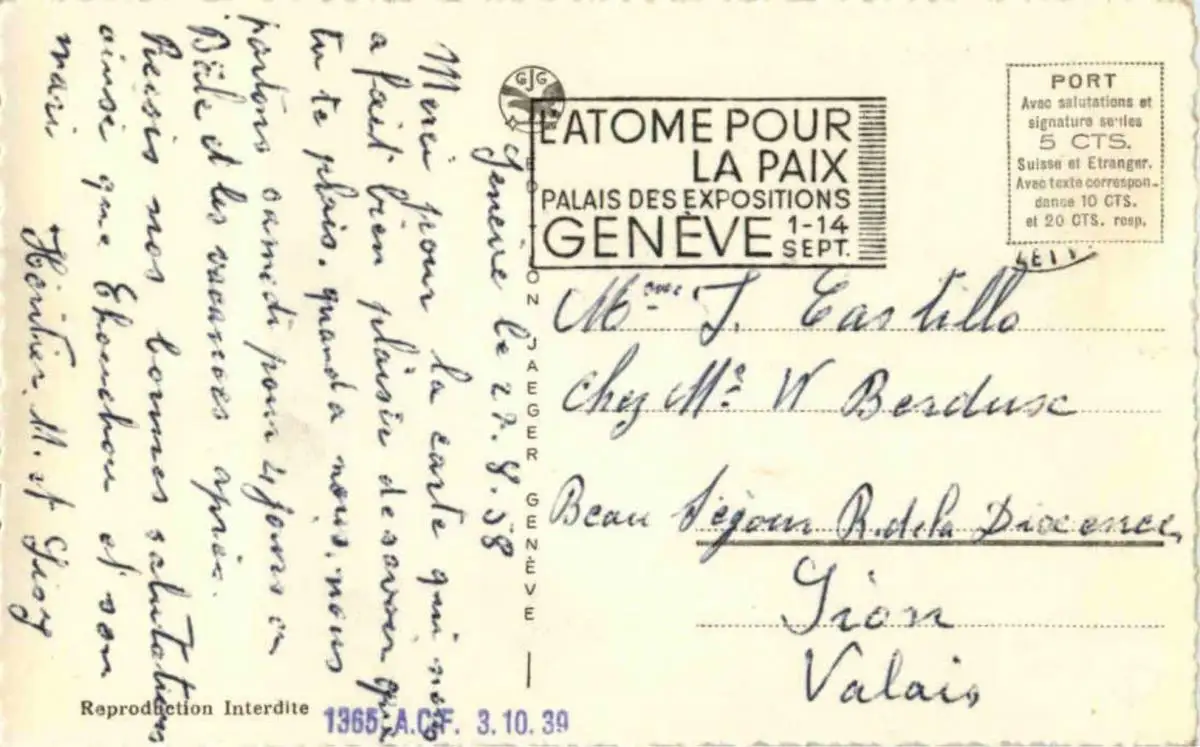 Genève le 27.8.58
Merci pour la carte qui nous
a fait bien plaisir de savoir que
tu te plais. quand a nous, nous
partons samedi pour 4 jours a
Bâle et les vacances après.
Reçois nos bonnes salutations
ainsi que Chouchou et son
mari
Héritier M. et
GJG
EDITION JAEGER GENÈVE
L'ATOME POUR
LA PAIX
PALAIS DES EXPOSITIONS
GENÈVE 1-14
SEPT.
PORT
Avec salutations et
signature seules
5 CTS.
Suisse et Etranger.
Avec texte correspon-
dance 10 CTS.
et 20 CTS. resp.
Mme J. Castillo
Chez Mr W Berdux
Beau Séjour R. de la Dixence
Sion
Valais
Reproduction Interdite
1365 A.C.F. 3.10.39